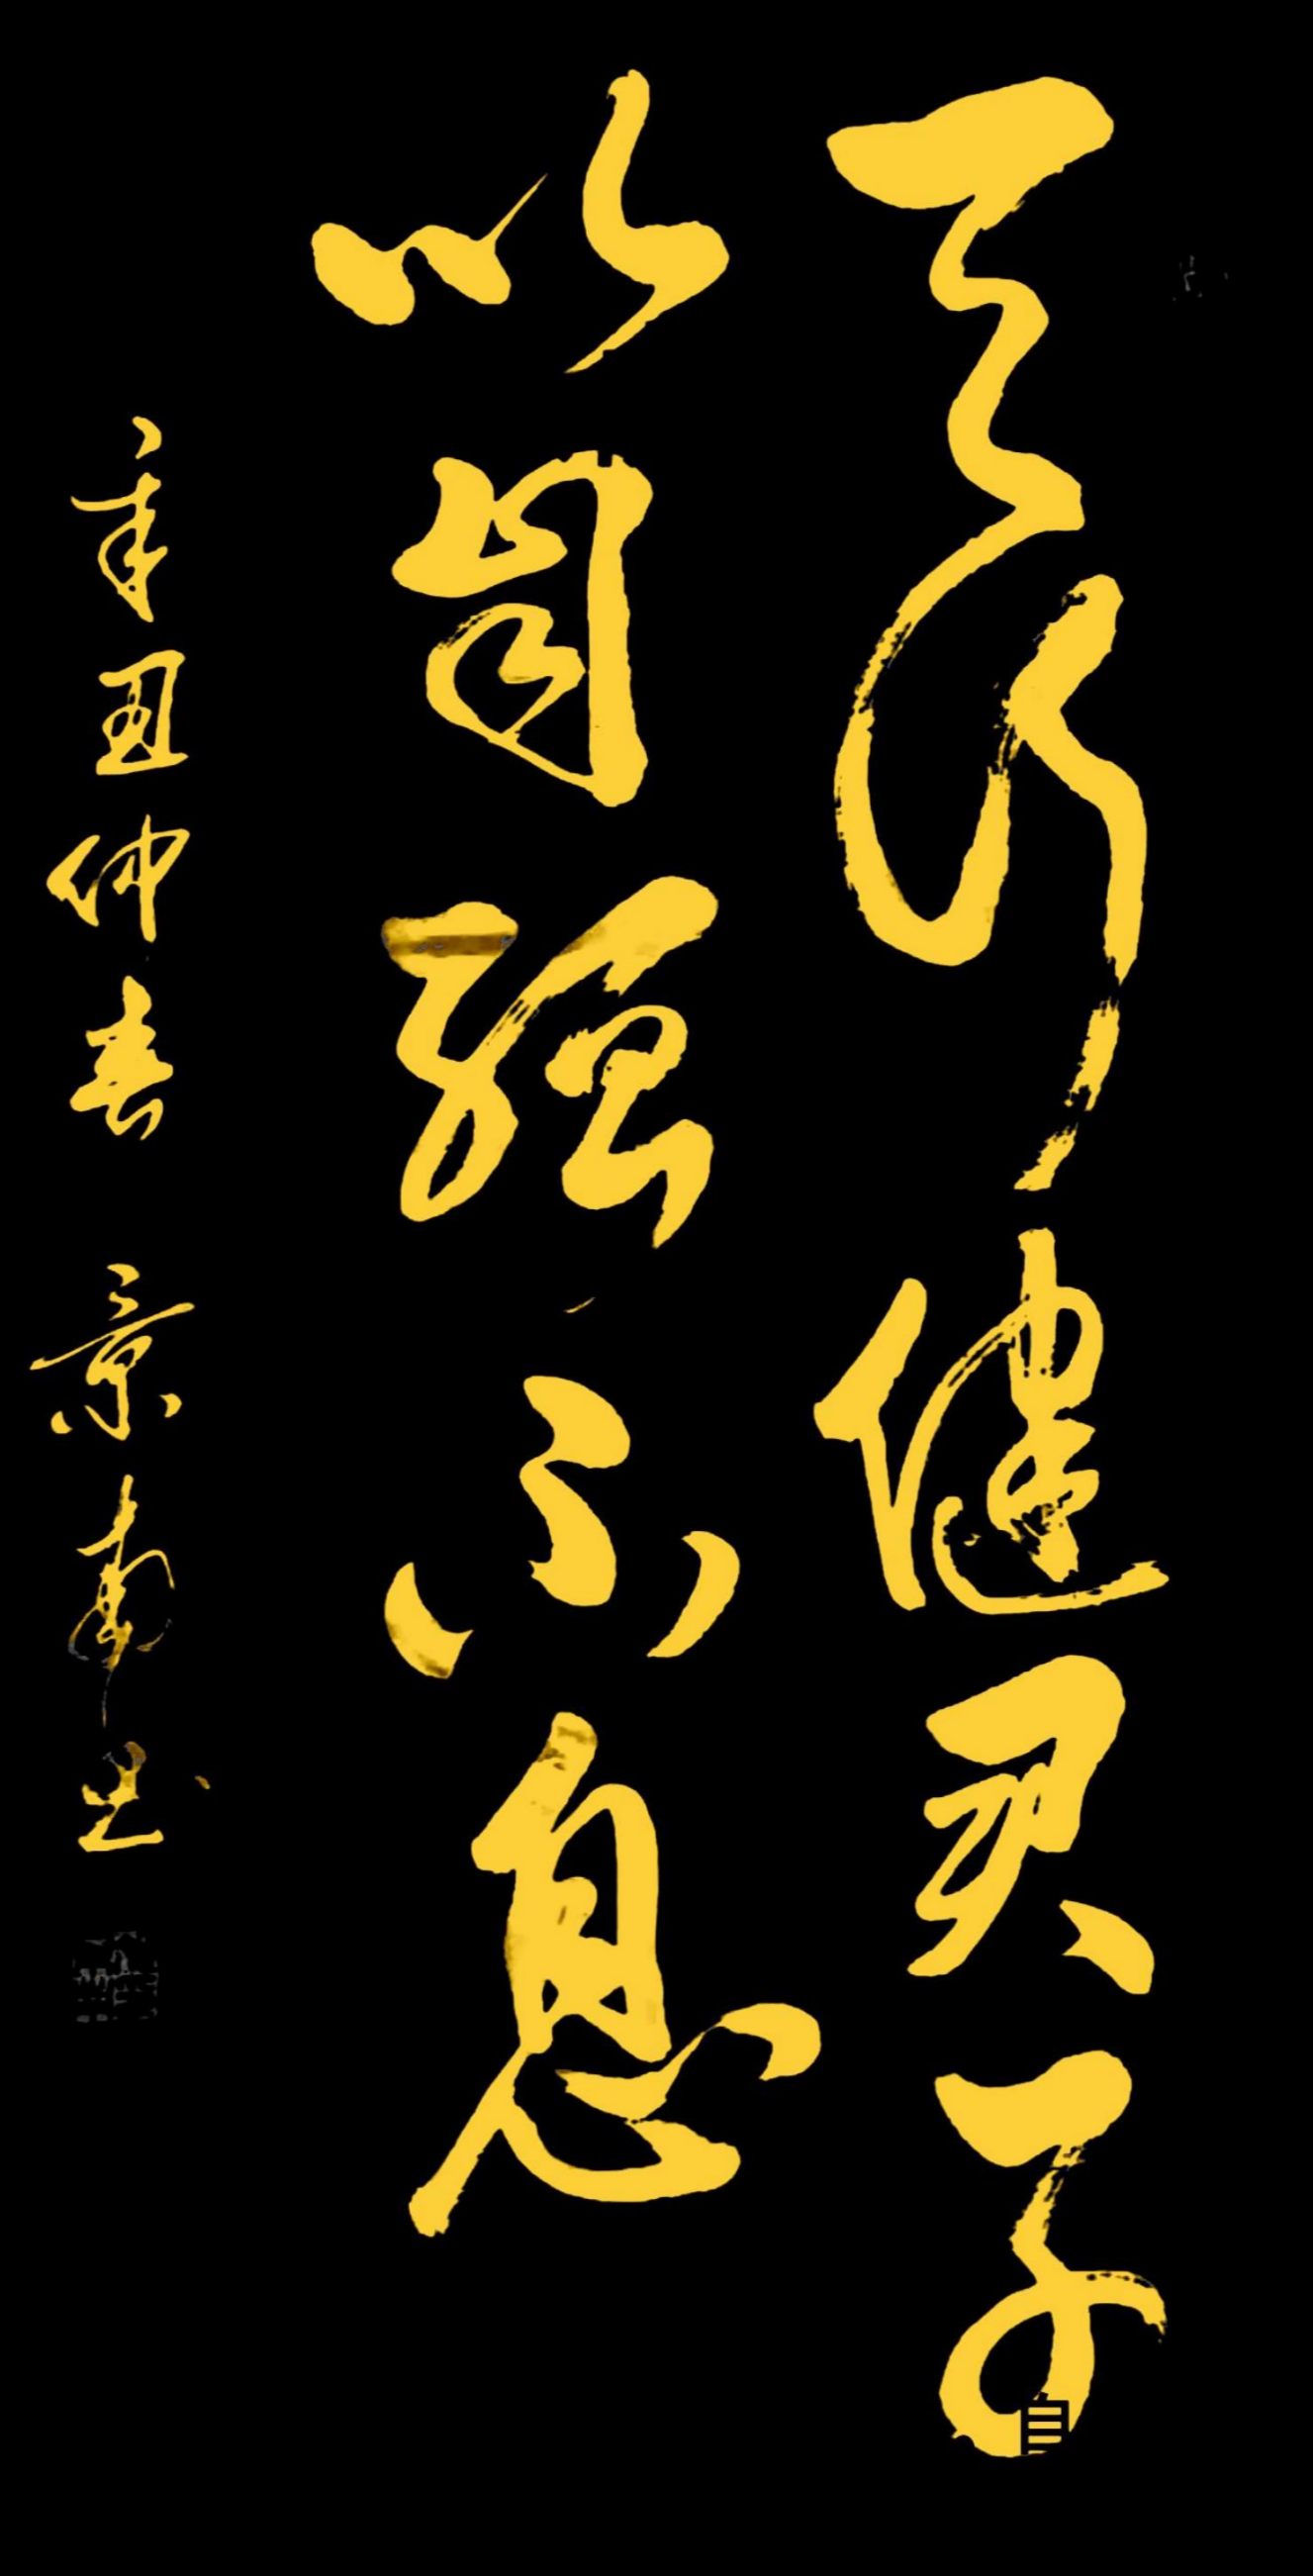 天行健君子
以自强不息
辛丑仲春 景南书